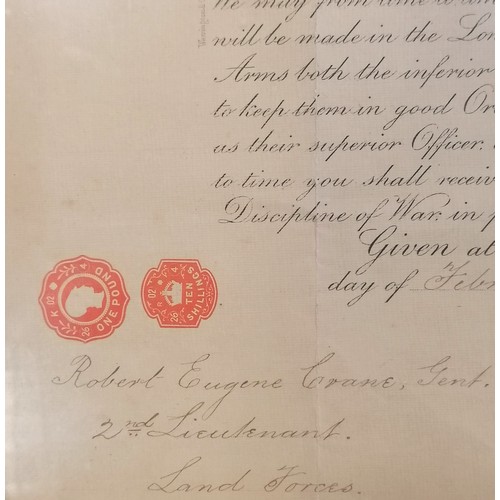 We may from time to
will be made in the Lon
Arms both the inferior
to keep them in good Or
as their superior Officer.
to time you shall receiv
Discipline of War. in p
Given at
day of Febr
K 02 4 26 ONE POUND
02 4 26 TEN SHILLINGS
Robert Eugene Crane, Gent.
2nd Lieutenant.
Land Forces.